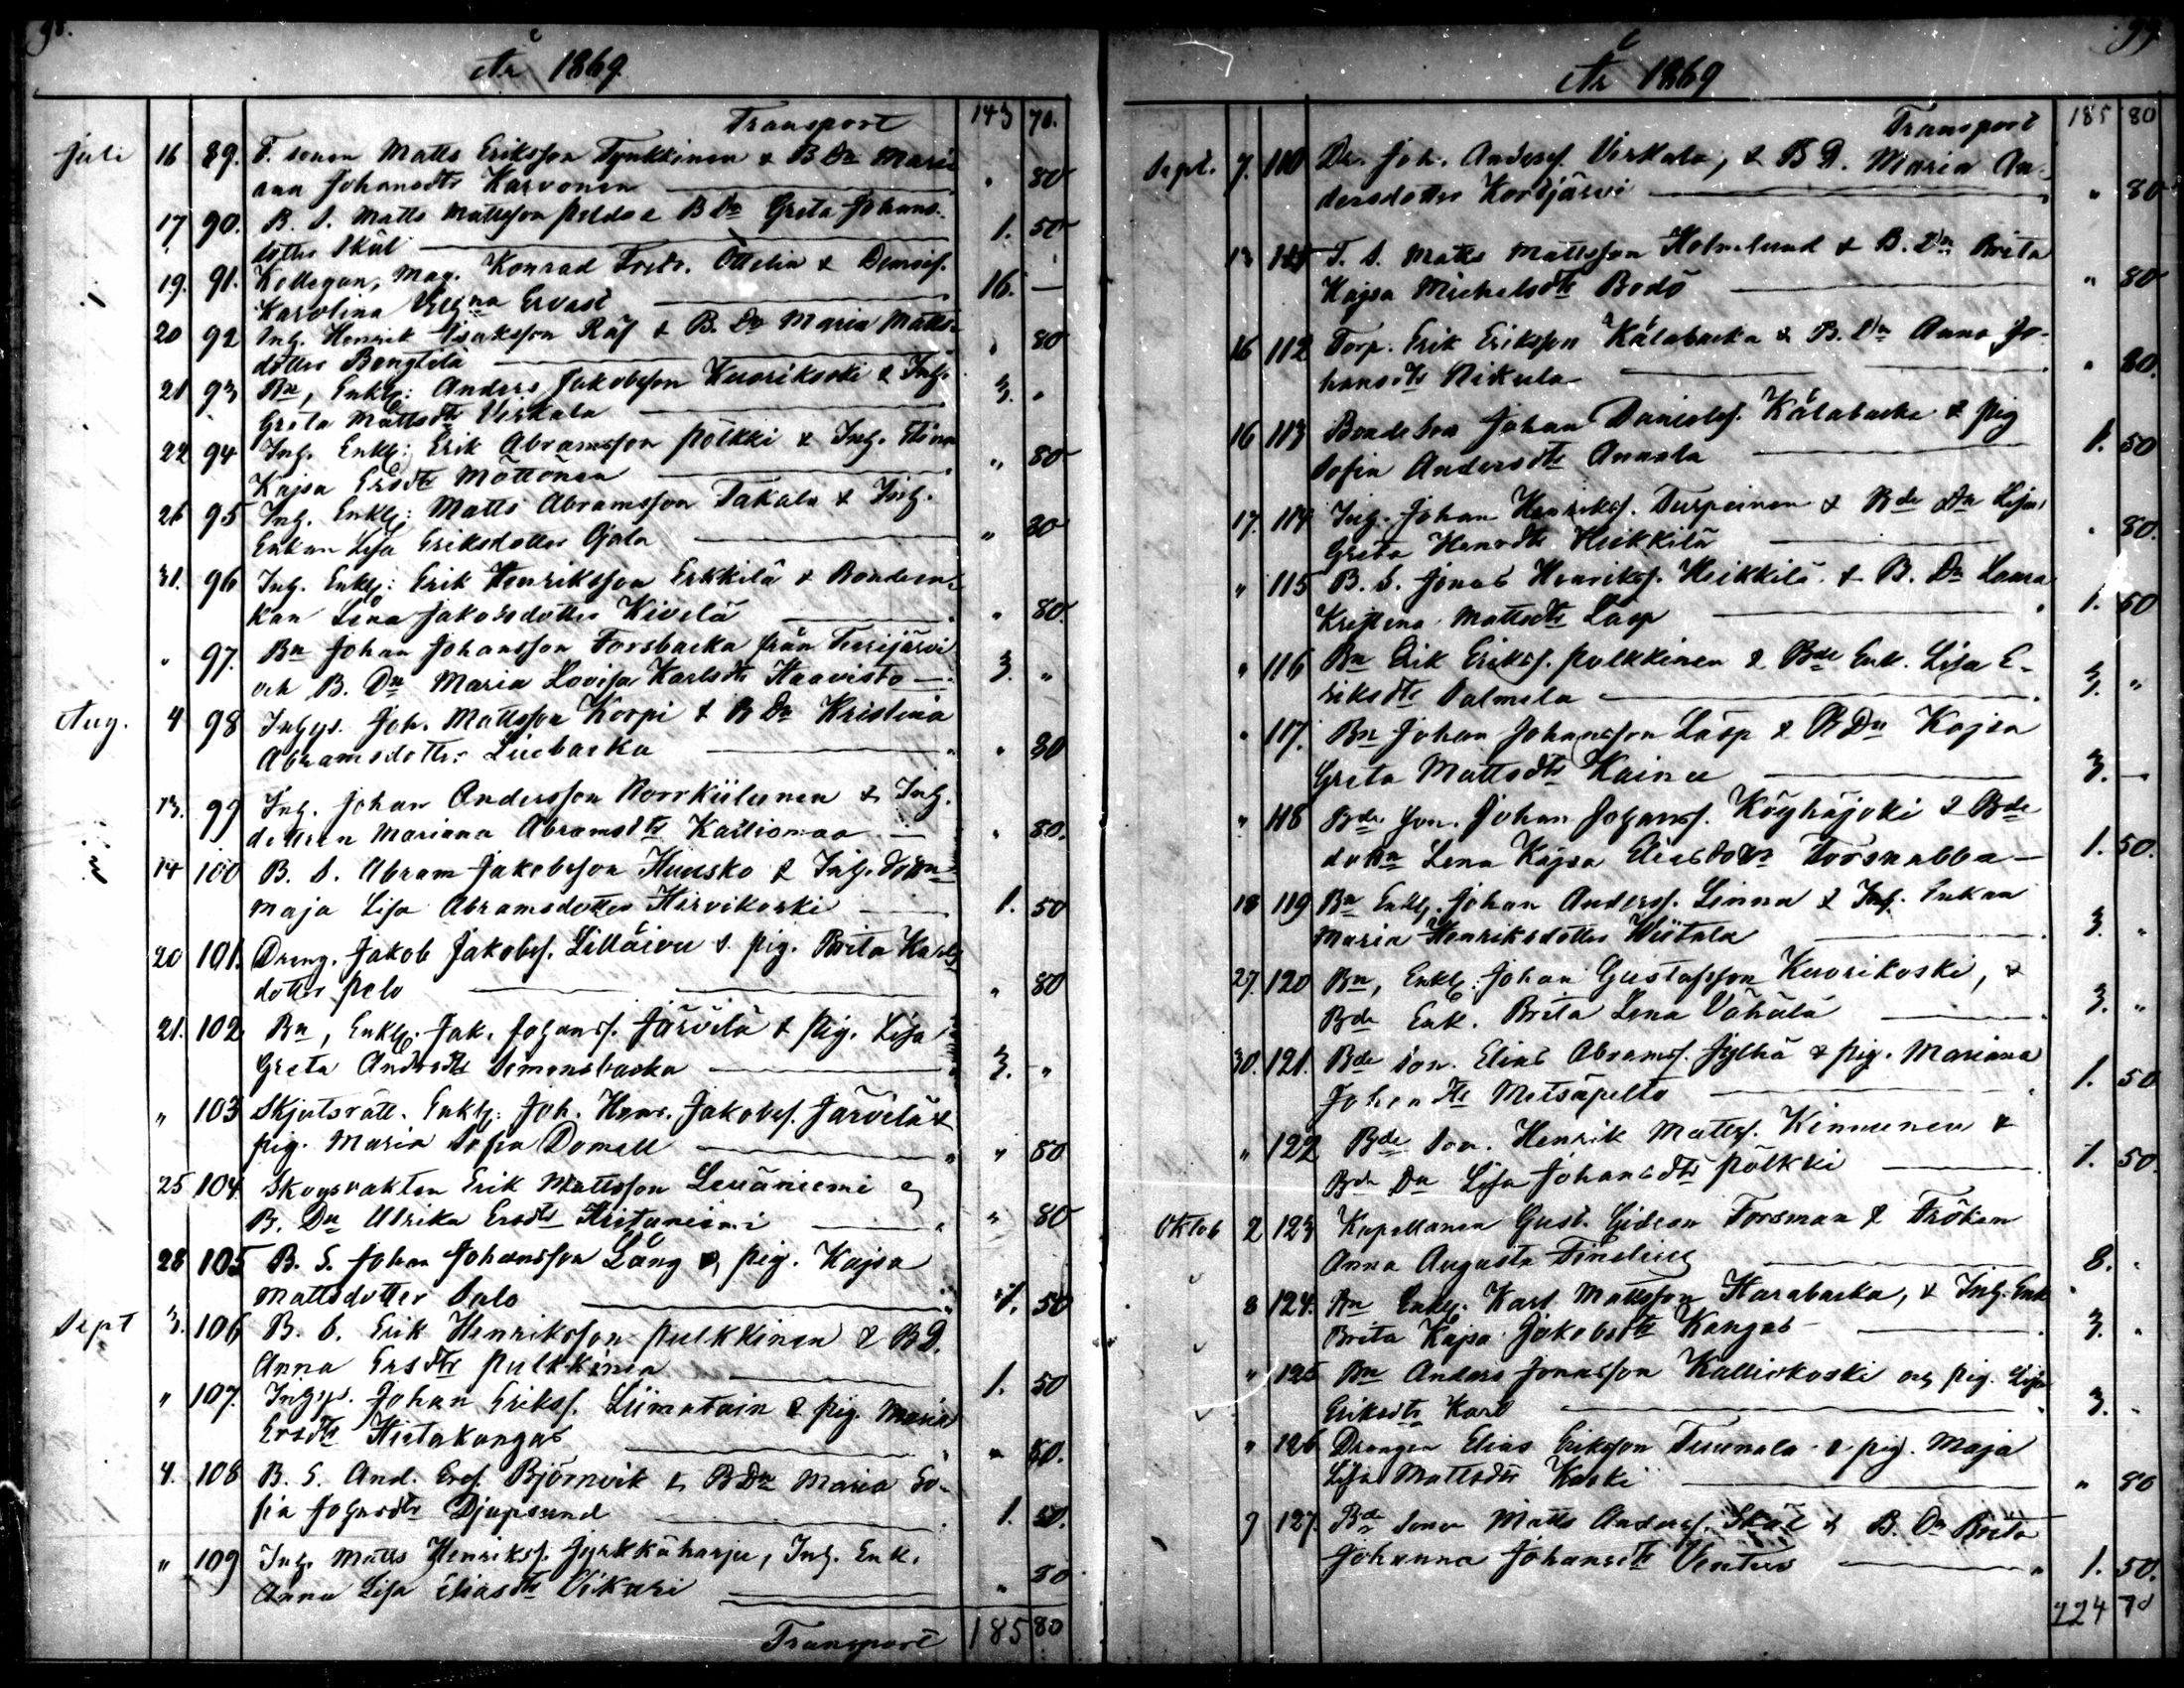 98.
År 1869
Transport 143 70.
Juli 16 89. T. sonen Matts Eriksson Tynkkinen & B Dn Maria
na Johansdtr Karvonen " 80
17 90. B. S. Matts Mattsson Peldo & B Dn Greta Johans
dotter Skál 1. 50
19. 91. Kollegan, Mag. Konrad Fredr. Ottelin & Demois.
Karolina Ervast 16. —
20 92 Inh. Henrik Isaksson Räf & B. Dn Maria Matts
dotter Bengtilä " 80
21 93 Bn, Enkl: Anders Jakobsson Kuorikoski & Inh.
Greta Mattsdtr Virkala 3. "
22 94 Inh. Enkl: Erik Abramsson Pölkki & Inh.
Kajsa Ersdtr Möttönen " 80
26 95 Inh. Enkl: Matts Abramsson Takala & Inh.
Enkan Lisa Eriksdotter Ojala " 80
31. 96 Inh. Enkl: Erik Henriksson Erkkilä & Bonden
kan Lena Jakobsdotter Kivelä " 80.
" 97. Bn Johan Johansson Forsbacka från Terijärvi
och B. Dn Maria Lovisa Karlsdtr Haavisto 3. "
Aug. 4 98 Inhys. Joh. Mattsson Korpi & B Dn Kristina
Abramsdotter Liubacka " 80
13. 99 Inh. Johan Andersson Norrkiilunen & Inh.
dottren Mariana Abramsdtr Kalliomaa " 80.
14 100 B. S. Abram Jakobsson Huusko & Inh. dottn
Maja Lisa Abramsdotter Hirvikoski 1. 50
20 101. Dreng. Jakob Jakobss. Lilläivu & pig. Brita Karls
dotter Pelo " 80
21. 102 Bn, Enkl. Jak. Johanss. Järvelä & pig. Lisa
Greta Andersdtr Simonsbacka 3. "
" 103 Skjutsrätt. Enkl: Joh. Henr. Jakobss. Järvelä &
pig. Maria Sofia Domell " 80
25 104 Skogsvakten Erik Mattsson Leuäniemi &
B. Dn Ulrika Ersdtr Hitaniemi " 80
28 105 B. S. Johan Johansson Lång & pig. Kajsa
Mattsdotter Salo 1. 50
Sept 3. 106 B. S. Erik Henriksson Pulkkinen & B D.
Anna Ersdtr Pulkkinen 1. 50
" 107. Inhys. Johan Erikss. Liimatain & pig. Maria
Ersdtr Hietakangas " 80.
4. 108 B. S. And. Erss. Björnvik & B Dn Maria So-
fia Johnsdtr Djupsund 1. 50.
" 109 Inh. Matts Henrikss. Jyrkkäharju, Inh. Enk.
Anna Lisa Eliasdtr Vikari " 80
Transport 185 80
99
År 1869
Transport 185 80
Sept. 7. 110 Dr. Joh. Anderss. Virkala, & B D. Maria An-
dersdotter Kortjärvi " 80
13 111 T. S. Matts Mattsson Holmlund & B. Dn Brita
Kajsa Michelsdtr Bodö " 80
16 112 Torp. Erik Eriksson Kålabacka & B. Dn Anna Jo-
hansdtr Nikula " 80.
16 113 Bonde Son Johan Danielss. Kålabacka & pig
Sofia Andersdtr Anaala 1. 50
17. 114 Inh. Johan Henrikss. Turpeinen & Bde Dn Lisa
Greta Hensdtr Heikkilä " 80.
" 115 B. S. Jonas Henrikss. Heikkilä & B. Dn Laura
Kristina Mattsdtr Lasp 1. 50
" 116 Bn Erik Erikss. Pulkkinen & Bde Enk. Lisa E-
riksdtr Salmela 3. "
" 117. Bn Johan Johansson Läsp & B Dn Kajsa
Greta Mattsdtr Kainu 3. —
" 118 Bde Son. Johan Johanss. Köyhäjoki & Bde
dottn Lena Kajsa Eliasdotr Forsnabba 1. 50.
18 119 Bn Enkl. Johan Anderss. Linna & Inh. Enkan
Maria Henriksdotter Wiitala 3. "
27. 120 Bn, Enkl: Johan Gustafsson Kuorikoski, &
Bde Enk. Brita Lena Vähälä 3. "
30. 121. Bde Son. Elias Abramss. Jylhä & pig. Mariana
Johansdtr Metsäpelto 1. 50
" 122 Bde Son. Henrik Mattss. Kinnunen &
Bde Dn Lisa Johansdtr Pölkki 1. 50.
Oktob 2 123 Kapellanen Gust. Gideon Forsman & Fröken
Anna Augusta Finelius 8. "
8 124. Bn Enkl. Karl Mattsson Harabacka, & Inh. Enk
Brita Kajsa Jakobsdtr Kangas 3. "
" 125 Bn Anders Jonasson Kalliokoski och pig. Lisa
Eriksdtr Karl 3. "
" 126 Drängen Elias Eriksson Tuunala & pig. Maja
Lisa Mattsdtr Koski " 80
9 127. Bde Sonen Matts Anderss. Skäl & B. Dn Brita
Johanna Johansdtr Ventus 1. 50.
224 70